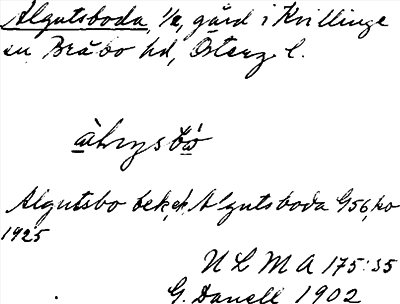 Algutsboda, 1/2, gård i Kvillinge
sn Bråbo hd, Österg. l.
Algutsbo Algutsboda G56,
1925
ULMA 175:35
G. Danell 1902